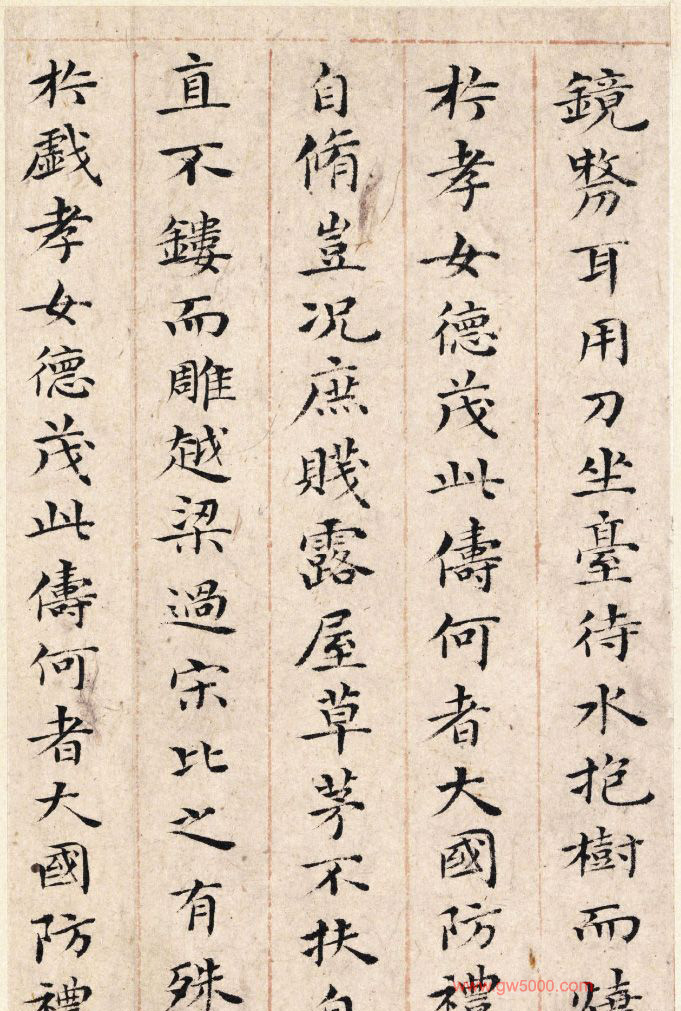 鏡剺耳用刀坐臺待水抱樹而燒
扵孝女德茂此儔何者大國防禮
自脩豈况庶賤露屋草茅不扶自
直不鏤而雕越梁過宋比之有殊
扵戲孝女德茂此儔何者大國防禮
www.gw5000.com